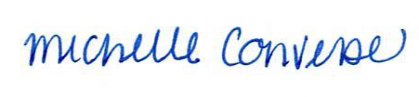 Michelle Converse